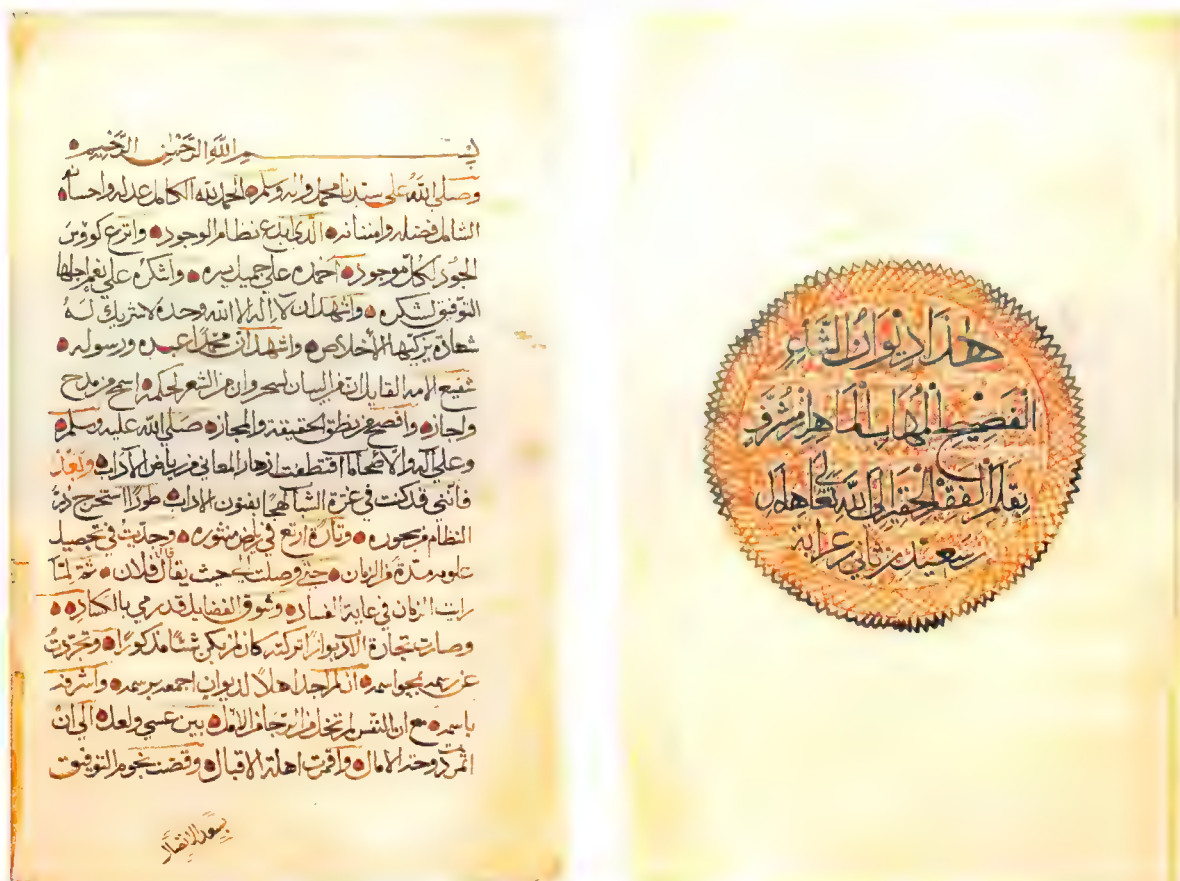 هذا ديوان الشاعر
الفصيح المهاسلما هلال مشرف
بقلم الفقير الحقير إلى الله تعالى هلال
سعيد بن ثاني عرابة
بسم الله الرحمن الرحيم
وصلى الله على سيدنا محمد واله وسلم الحمد لله الكامل عدله واحسانه
الشامل فضله وامتنانه الذي ابدع نظام الوجود واترع كووس
الجود لكل موجود احمده على جميل بره واشكره على نعم اجلها
التوفيق لشكره واشهد ان لا اله الا الله وحده لا شريك له
شهادة يزكيها الأخلاص واشهد ان محمدا عبده ورسوله
شفيع الامه القايل ان من البيان لسحر وان من الشعر لحكمه اسمح من مدح
واجازه وافصح من نطق الحقيقة والمجازه صلى الله عليه وسلم
وعلى آله والاصحاب ما اقتطفت ازهار المعاني من رياض الآداب وبعد
فأنني قد كنت في غرة الشباب لهجا بفنون الاداب طورا استخرج درر
النظام من بحوره وتارة ارتع في رياض منثوره وجديت في تحصيل
علومه مدة من الزمان حتى وصلت الى حيث يقال قال فلان ثم لما
رايت الزمان في غاية الفساد وسوق الفضايل قد رمي بالكساد
وصارت تجارة الآداب بوارا تركته كان لم يكن شئا مذكورا وتجردت
عن رسمه بمحو اسمه اذ لم اجد اهلا لديوان اجمعه برسمه واشرفه
باسمه مع ان النفس لم تخل من الرجا والامل بين عسى ولعل الى ان
اثمرت دوحة الامال واقمرت اهلة الاقبال وقضت نجوم التوفيق
بسعد الانتصار